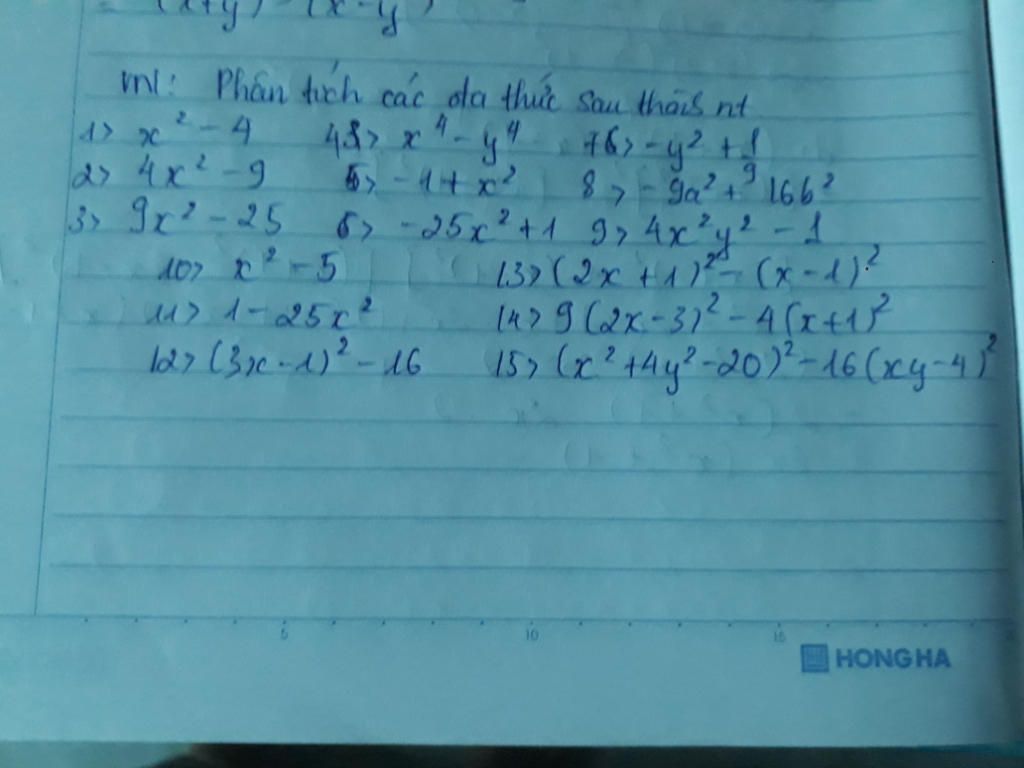 = (x+y) - (x-y)
VN: Phân tích các đa thức sau thành nt
1> x² - 4 4> x⁴ - y⁴ 7> -y² + 1/9
2> 4x² - 9 5> -1 + x² 8> -9a² + 16b²
3> 9x² - 25 6> -25x² + 1 9> 4x²y² - 1
10> x² - 5 13> (2x + 1)² - (x - 1)²
11> 1 - 25x² 14> 9(2x - 3)² - 4(x + 1)²
12> (3x - 1)² - 16 15> (x² + 4y² - 20)² - 16(xy - 4)²
5 10 15
HONG HA